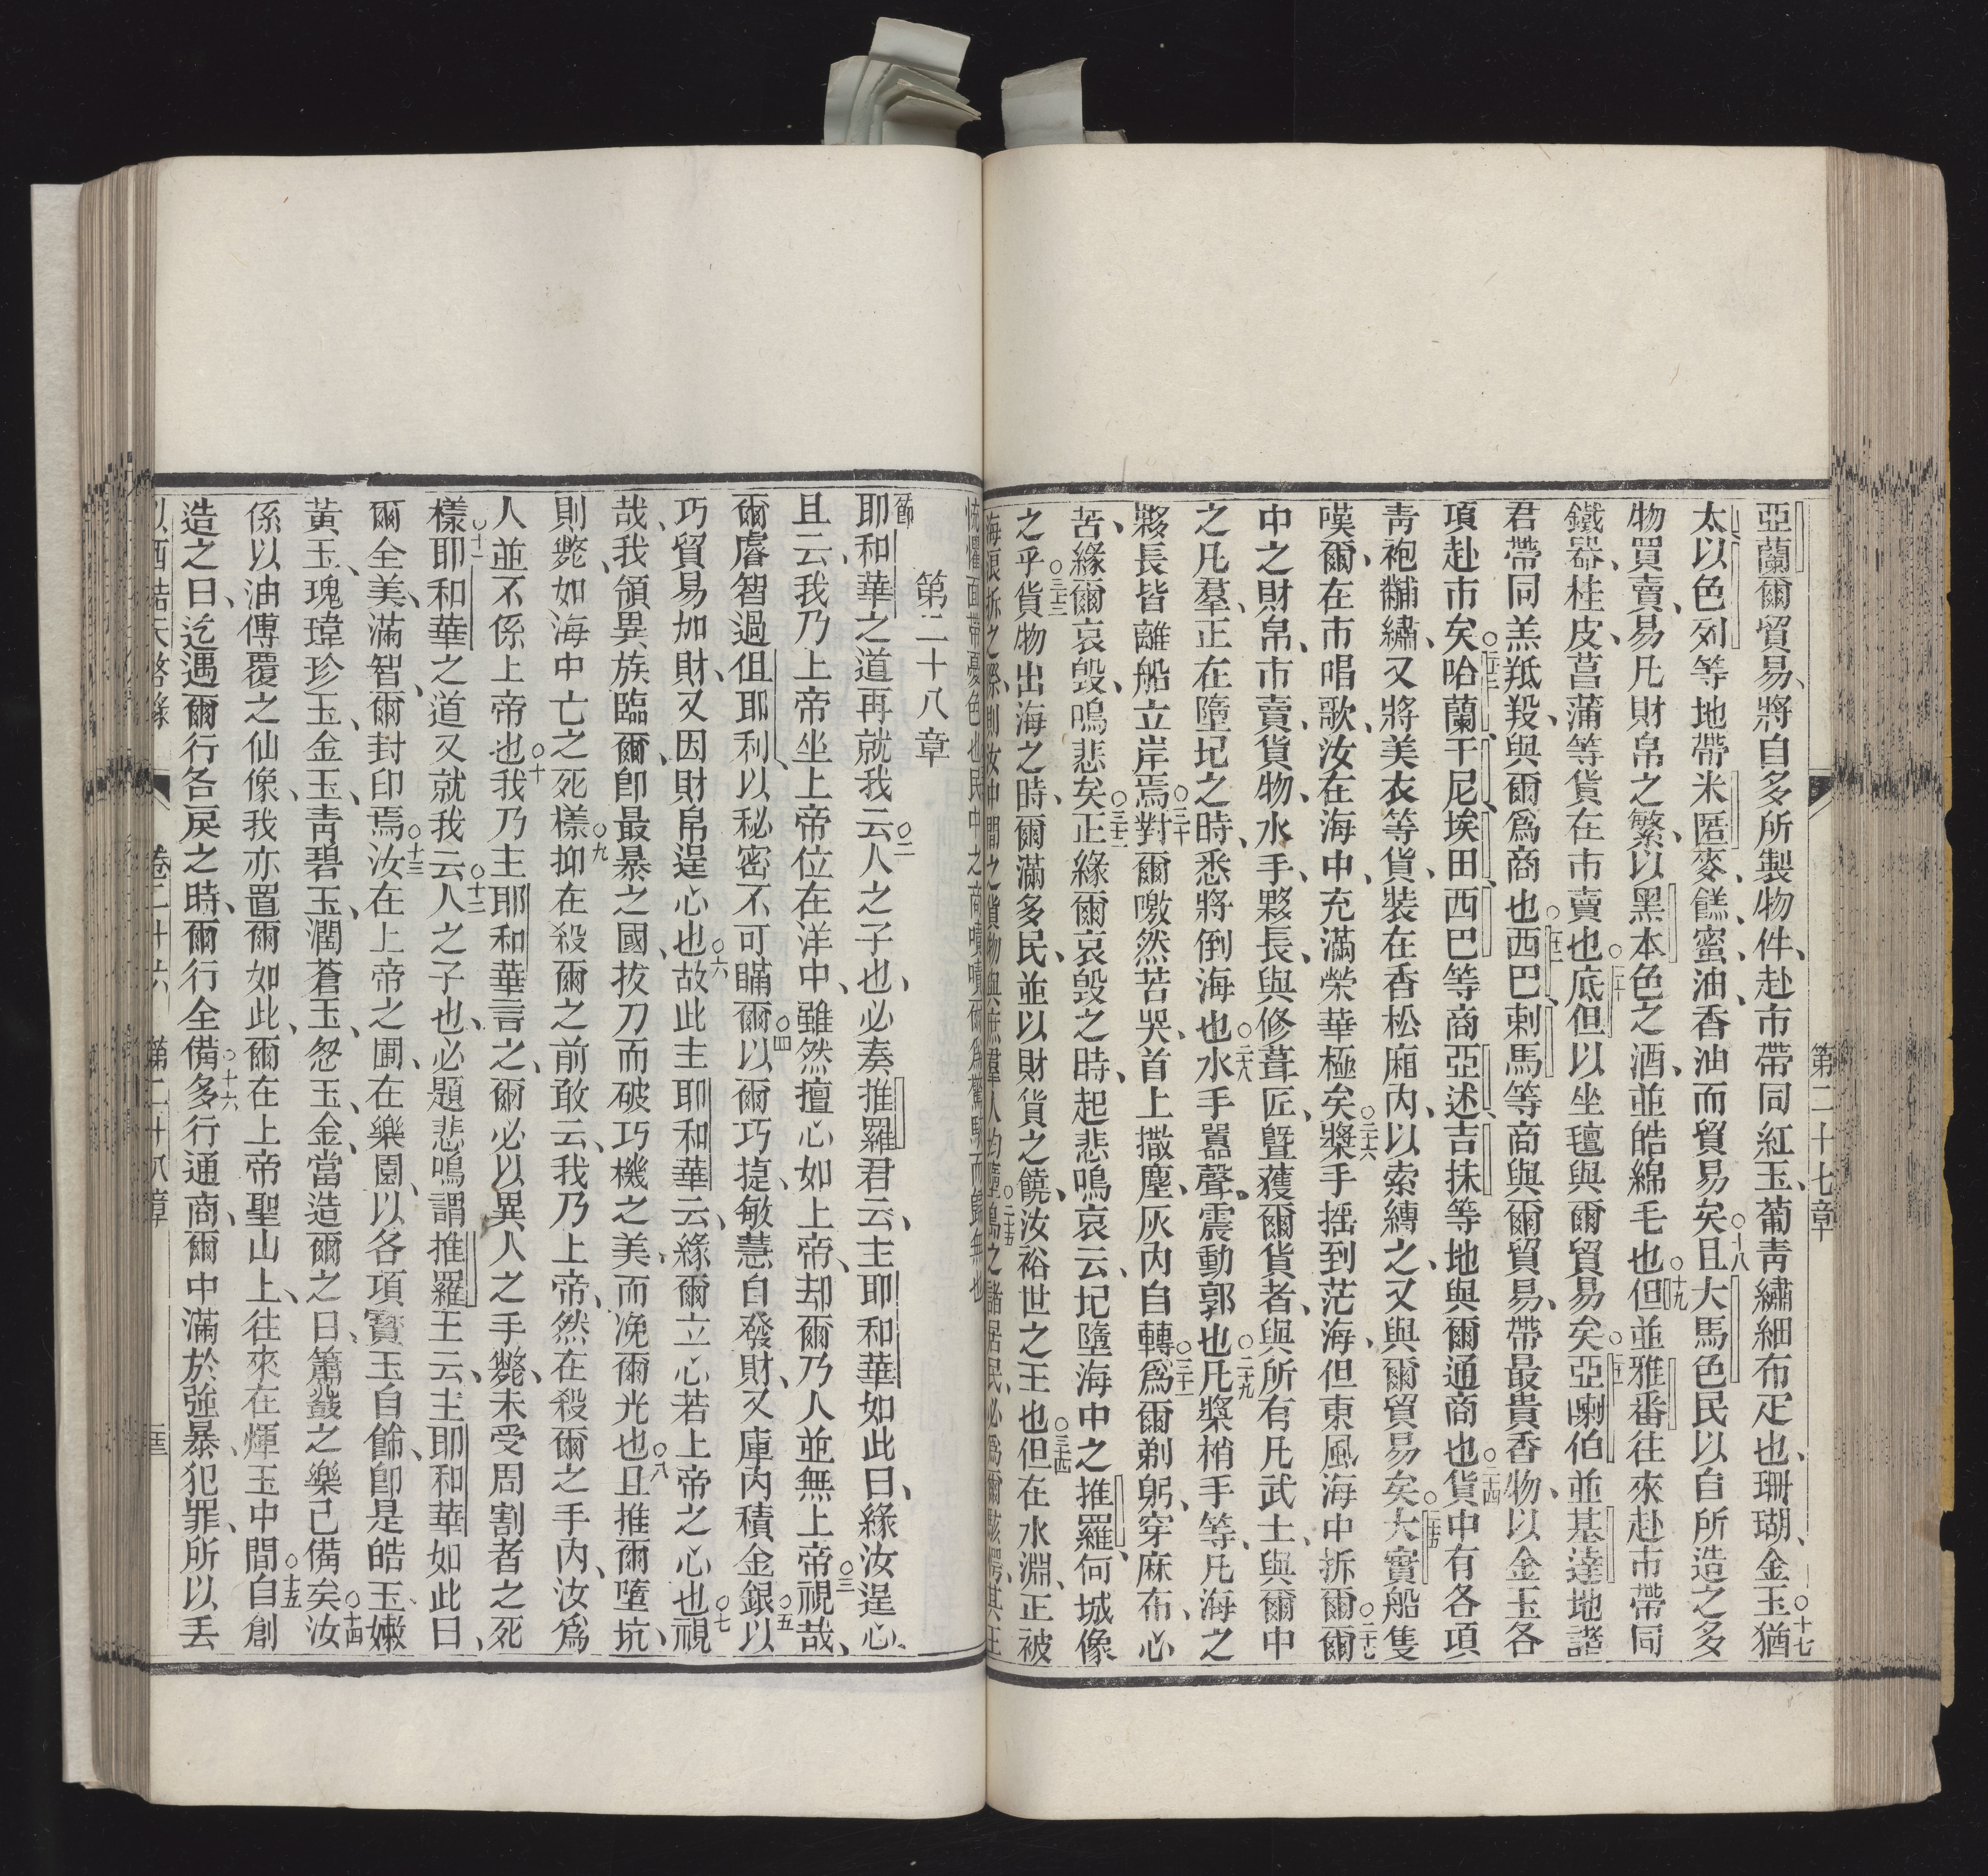 第二十七章
亞蘭爾貿易、將自多所製物件、赴市帶同紅玉、葡靑繡細布疋也、珊瑚、金玉○十七猶
太以色列等地帶米匿麥、饈蜜、油、香油而貿易矣○十八且大馬色民以自所造之多
物買賣、易凡財帛之繁、以黑本色之酒、並皓綿毛也○十九但並雅番往來赴市帶同
鐵器、桂皮、菖蒲等貨在市賣也○二十底但以坐氊與爾貿易矣○二十一亞喇伯並基達地諸
君帶同羔羝羖、與爾爲商也○二十二西巴、剌馬等商與爾貿易、帶最貴香物、以金玉各
項赴市矣○二十三哈蘭、干尼、埃田、西巴等商亞述、吉抹等地與爾通商也○二十四貨中有各項
靑袍黼繡、又將美衣等貨、裝在香松廂內、以索縛之、又與爾貿易矣○二十五大實船隻
嘆爾、在市唱歌、汝在海中、充滿榮華極矣○二十六槳手搖到茫海、但東風海中拆爾○二十七爾
中之財帛、市賣、貨物、水手、夥長、與修葺匠、曁獲爾貨者、與所有凡武士、與爾中
之凡羣、正在墮圮之時、悉將倒海也○二十八水手囂聲、震動郭也○二十九凡槳梢手等、凡海之
夥長皆離船立岸焉○三十對爾噭然苦哭、首上撒塵、灰內自轉○三十一爲爾剃躬、穿麻布、心
苦、緣爾哀毀、鳴悲矣○三十二正緣爾哀毀之時、起悲鳴、哀云、圮墮海中之推羅、何城像
之乎○三十三貨物出海之時、爾滿多民、並以財貨之饒、汝裕世之王也○三十四但在水淵、正被
海浪拆之際、則汝中間之貨物與庶羣人均墮○三十五島之諸居民、必爲爾駭愕、其王
慌懼面帶憂色也民中之商嘖嘖爾爲驚駭而歸無也
第二十八章
節耶和華之道再就我云○二人之子也、必奏推羅君云、主耶和華如此曰、緣汝逞心、
且云、我乃上帝坐上帝位在洋中、雖然擅心如上帝、却爾乃人並無上帝○三視哉、
爾睿智過但耶利、以秘密不可瞞爾○四以爾巧捷、敏慧自發財、又庫內積金銀○五以
巧貿易加財、又因財帛逞心也○六故此主耶和華云、緣爾立心若上帝之心也○七視
哉、我領異族臨爾、卽最暴之國、拔刀而破巧機之美、而浼爾光也○八且推爾墮坑、
則斃、如海中亡之死樣○九抑在殺爾之前敢云、我乃上帝、然在殺爾之手內、汝爲
人並不係上帝也○十我乃主耶和華言之、爾必以異人之手斃、未受周割者之死
樣○十一耶和華之道又就我云○十二人之子也、必題悲鳴謂推羅王云、主耶和華如此曰、
爾全美、滿智、爾封印焉○十三汝在上帝之圃、在樂園、以各項寳玉自餙、卽是皓玉嫩
黃玉、瑰瑋珍玉、金玉、靑碧玉、潤蒼玉、怱玉、金、當造爾之日、簫鼗之樂已備矣○十四汝
係以油傅覆之仙像、我亦置爾如此、爾在上帝聖山上、往來在煇玉中間○十五自創
造之日、迄遇爾行各戾之時、爾行全備○十六多行通商、爾中滿於強暴、犯罪、所以丟
以西結天啓錄
卷二十六
第二十八章